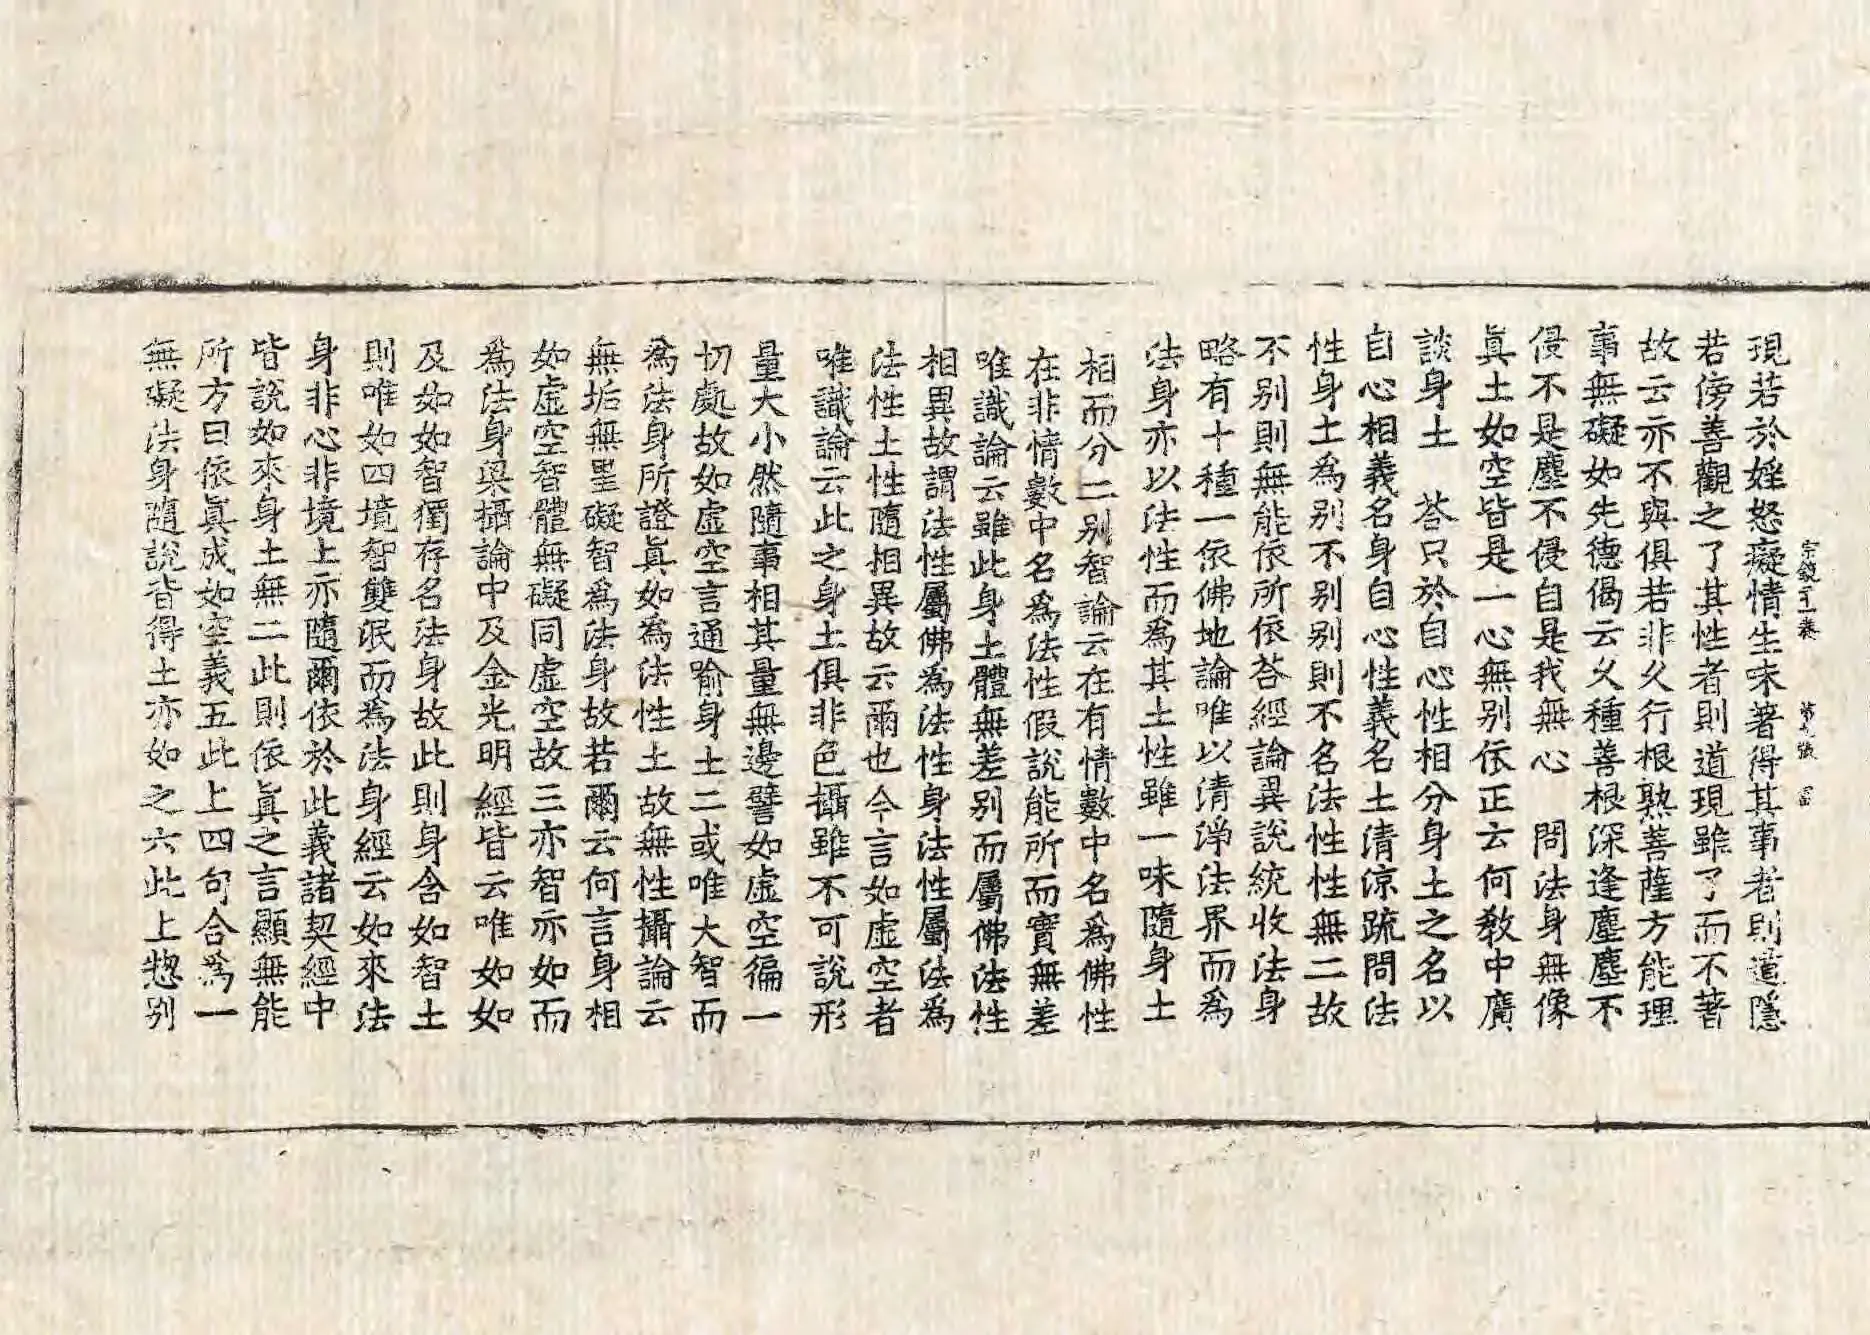 現若於婬怒癡情生味著得其事者則道隱
宗鏡二十一卷 第九張 富
若傍善觀之了其性者則道現雖了而不著
故云亦不與俱若非久行根熟善薩方能理
事無礙如先德偈云久種善根深逢塵塵不
侵不是塵不侵自是我無心 問法身無像
眞土如空皆是一心無別依正云何教中廣
談身土 荅只於自心性相分身土之名以
自心相義名身自心性義名土清涼䟽問法
性身土為別不別別則不名法性性無二故
不別則無能依所依荅經論異說統收法身
略有十種一依佛地論唯以清淨法界而為
法身亦以法性而為其土性雖一味隨身土
相而分二別智論云在有情數中名為佛性
在非情數中名為法性假說能所而實無差
唯識論云雖此身土體無差別而屬佛法性
相異故謂法性屬佛為法性身法性屬法為
法性土性隨相異故云爾也今言如虛空者
唯識論云此之身土俱非色攝雖不可說形
量大小然隨事相其量無邊譬如虛空徧一
切處故如虛空言通喻身土二或唯大智而
為法身所證眞如為法性土故無性攝論云
無垢無罣礙智為法身故若爾云何言身相
如虛空智體無礙同虛空故三亦智亦如而
為法身梁攝論中及金光明經皆云唯如如
及如如智獨存名法身故此則身含如智土
則唯如四境智雙泯而為法身經云如來法
身非心非境土亦隨爾依於此義諸契經中
皆說如來身土無二此則依眞之言顯無能
所方曰依眞成如空義五此上四句合為一
無礙法身隨說皆得土亦如之六此上揔別